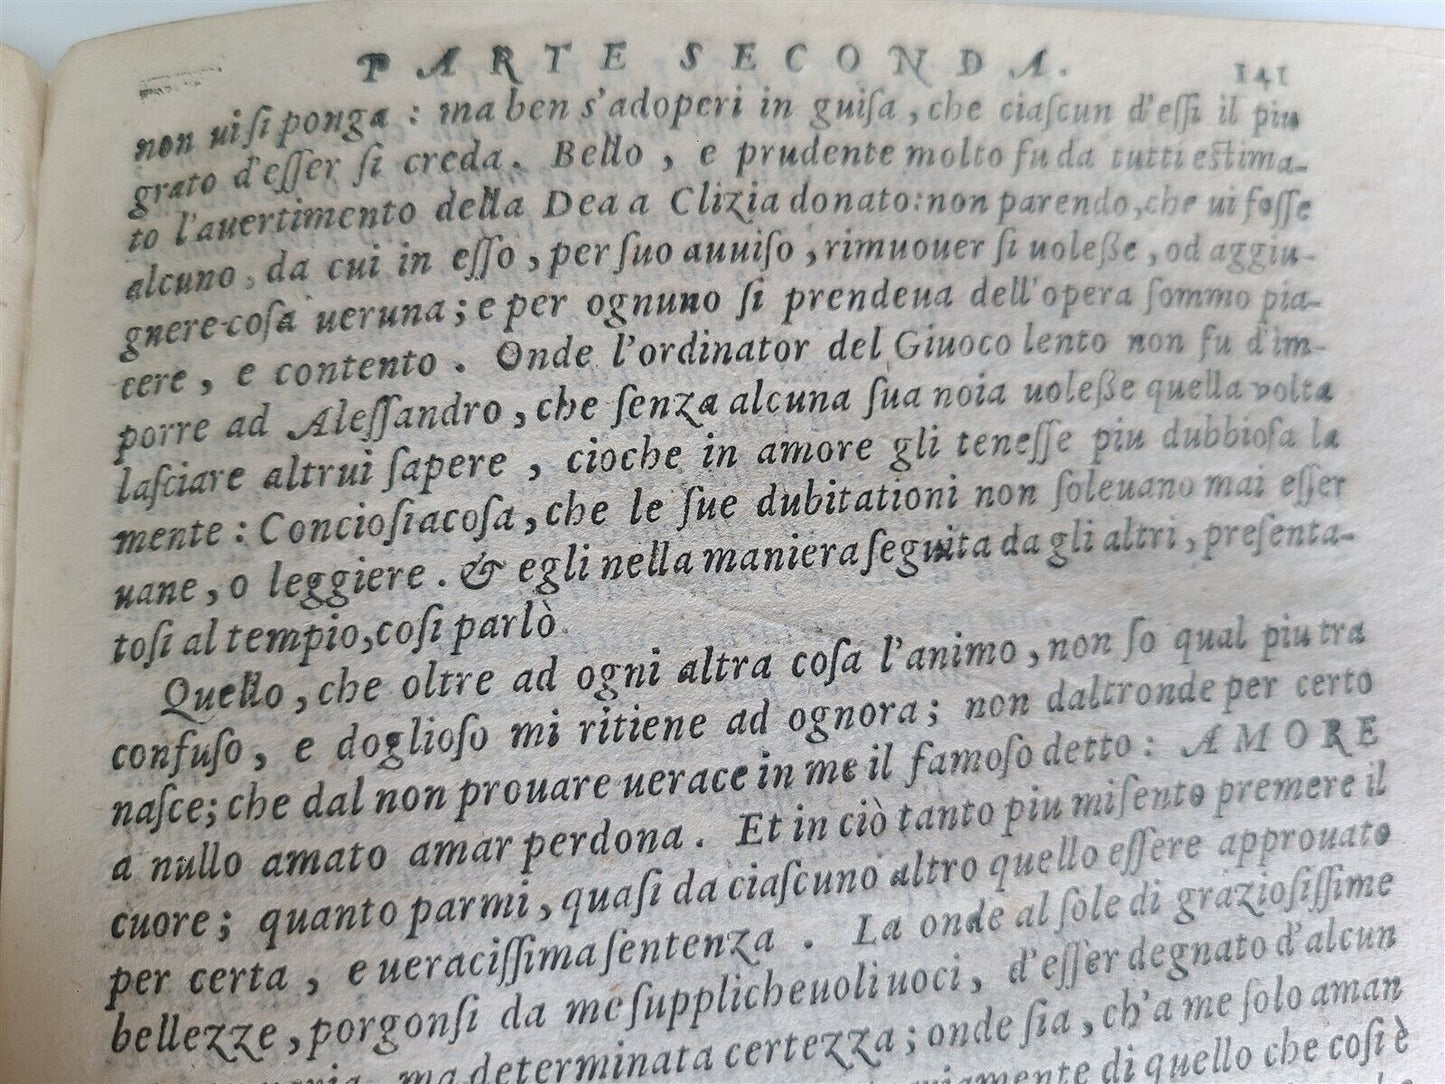 PARTE SECONDA. 141
non ui ſi ponga : ma ben s'adoperi in guiſa, che ciaſcun d'eſſi il piu
grato d'eſſer ſi creda. Bello, e prudente molto fu da tutti estima-
to l'auertimento della Dea a Clizia donato: non parendo, che ui foſſe
alcuno, da cui in eſſo, per ſuo auuiſo, rimuouer ſi uoleße, od aggiu-
gnere coſa ueruna; e per ognuno ſi prendeua dell'opera ſommo pia-
cere, e contento. Onde l'ordinator del Giuoco lento non fu d'im-
porre ad Aleſſandro, che ſenza alcuna ſua noia uoleße quella volta
laſciare altrui ſapere, cioche in amore gli teneſſe piu dubbioſa la
mente: Concioſiacoſa, che le ſue dubitationi non ſoleuano mai eſſer
uane, o leggiere. & egli nella maniera ſeguita da gli altri, preſenta-
toſi al tempio, coſi parlò.
Quello, che oltre ad ogni altra coſa l'animo, non ſo qual piu tra
confuſo, e doglioſo mi ritiene ad ognora; non daltronde per certo
naſce; che dal non prouare uerace in me il famoſo detto: AMORE
a nullo amato amar perdona. Et in ciò tanto piu mi ſento premere il
cuore; quanto parmi, quaſi da ciaſcuno altro quello eſſere approuato
per certa, e ueraciſſima ſentenza. La onde al ſole di grazioſiſſime
bellezze, porgonſi da me ſuppliche uoli uoci, d'eſſer degnato d'alcun
ma determinata certezza; onde ſia, ch'a me ſolo aman
di quello che coſi è